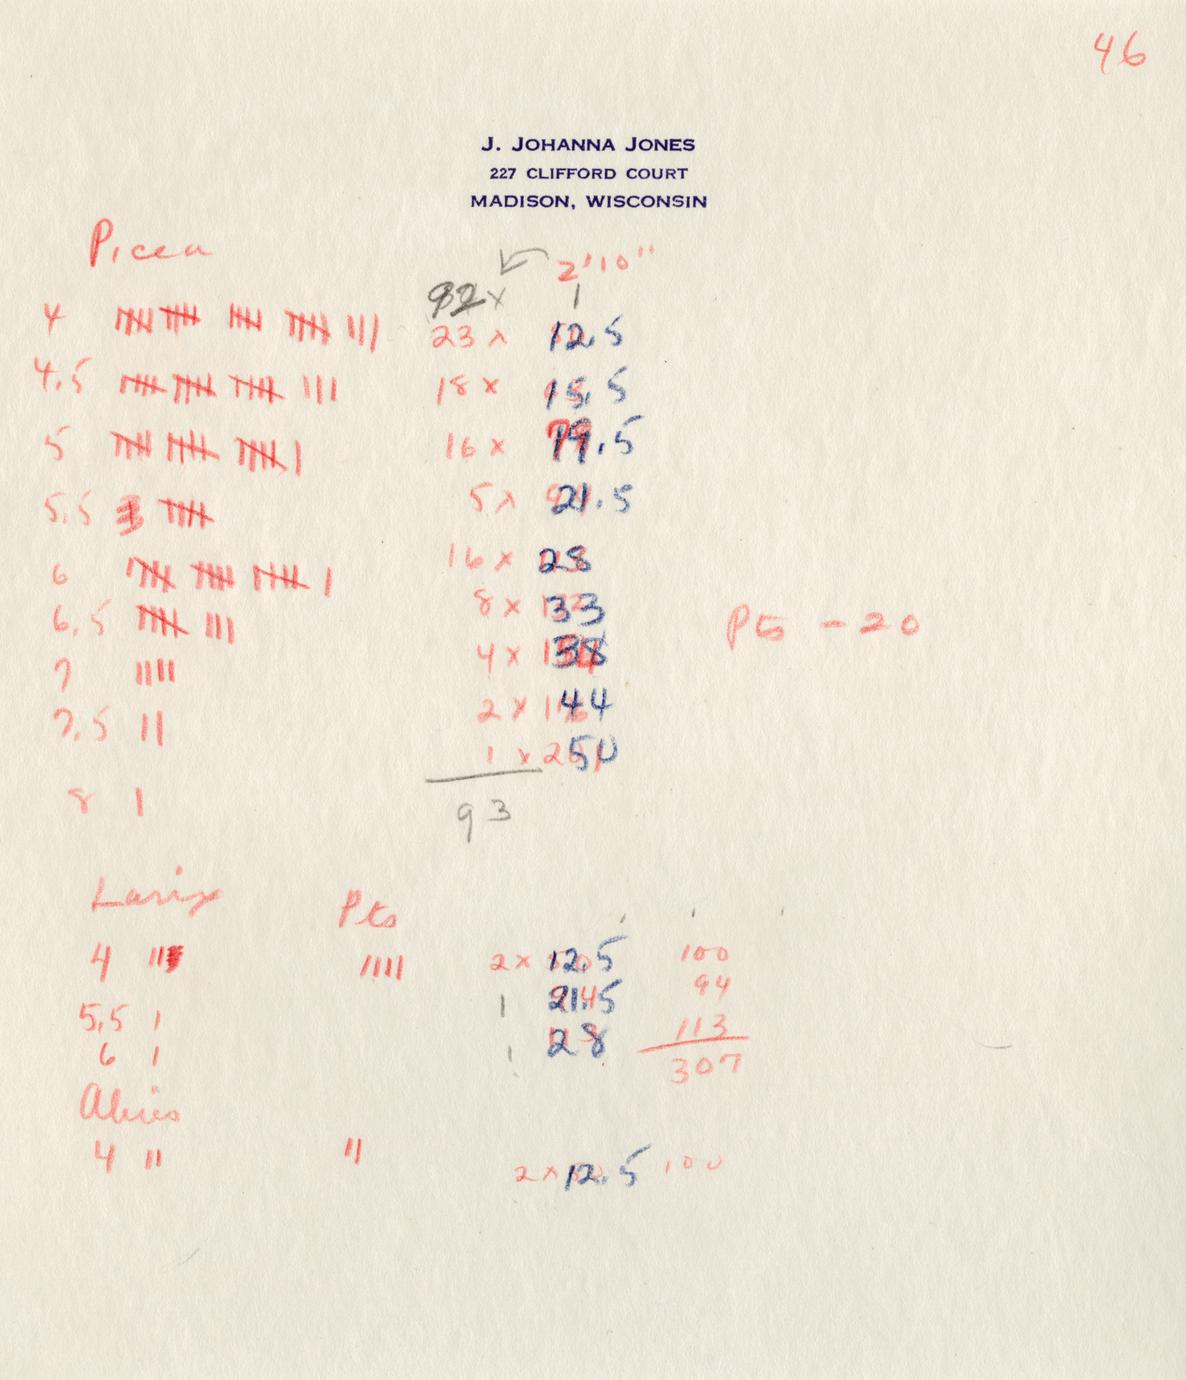 46
J. JOHANNA JONES
227 CLIFFORD COURT
MADISON, WISCONSIN
Picea
2'10"
92 x 1
4 23 x 12.5
4.5 18 x 15.5
5 16 x 19.5
5.5 5 x 21.5
6 16 x 28
6.5 8 x 33
Pts - 20
7 4 x 38
7.5 2 x 44
1 x 50
8
93
Larix Pts
4 2 x 12.5 100
5.5 1 21.5 94
6 1 28 113
307
Abies
4 2 x 12.5 100